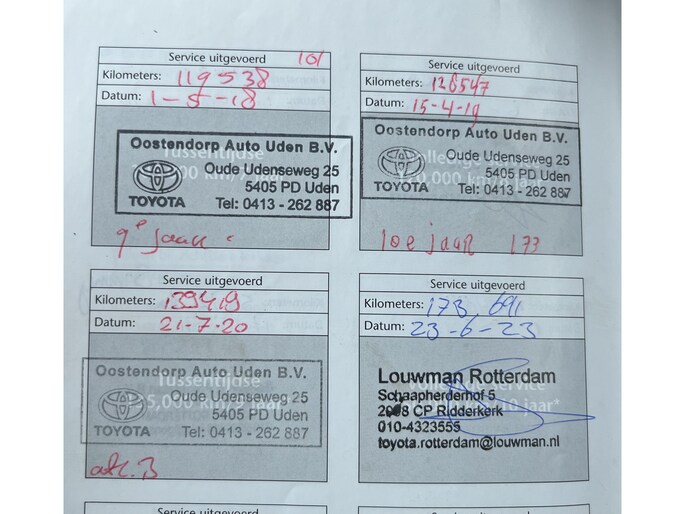 Service uitgevoerd 101
Kilometers: 119538
Datum: 1-5-18
Tussentijdse
Oostendorp Auto Uden B.V.
Oude Udenseweg 25
5405 PD Uden
TOYOTA Tel: 0413 - 262 887
9e jaar
Service uitgevoerd
Kilometers: 126547
Datum: 15-4-19
Oostendorp Auto Uden B.V.
Oude Udenseweg 25
5405 PD Uden
TOYOTA Tel: 0413 - 262 887
10e jaar 173
Service uitgevoerd
Kilometers: 139419
Datum: 21-7-20
Oostendorp Auto Uden B.V.
Tussentijdse
Oude Udenseweg 25
5405 PD Uden
TOYOTA Tel: 0413 - 262 887
Service uitgevoerd
Kilometers: 173 691
Datum: 23-6-23
Louwman Rotterdam
Schaapherderhof 5
CP Ridderkerk
010-4323555
toyota.rotterdam@louwman.nl
Service uitgevoerd
Service uitgevoerd